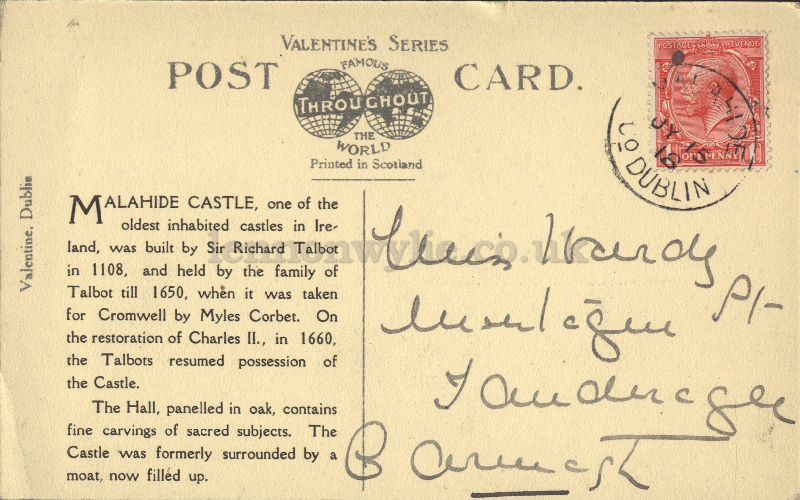 VALENTINE'S SERIES
POST CARD.
FAMOUS
THROUGHOUT
THE
WORLD
Printed in Scotland
POSTAGE REVENUE
ONE PENNY
MALAHIDE
JY 15
18
Co DUBLIN
Valentine, Dublin
MALAHIDE CASTLE, one of the
oldest inhabited castles in Ire-
land, was built by Sir Richard Talbot
in 1108, and held by the family of
Talbot till 1650, when it was taken
for Cromwell by Myles Corbet. On
the restoration of Charles II., in 1660,
the Talbots resumed possession of
the Castle.
The Hall, panelled in oak, contains
fine carvings of sacred subjects. The
Castle was formerly surrounded by a
moat, now filled up.
lennonwylie.co.uk
Miss Hardy
St
Tanderagee
Co Armagh